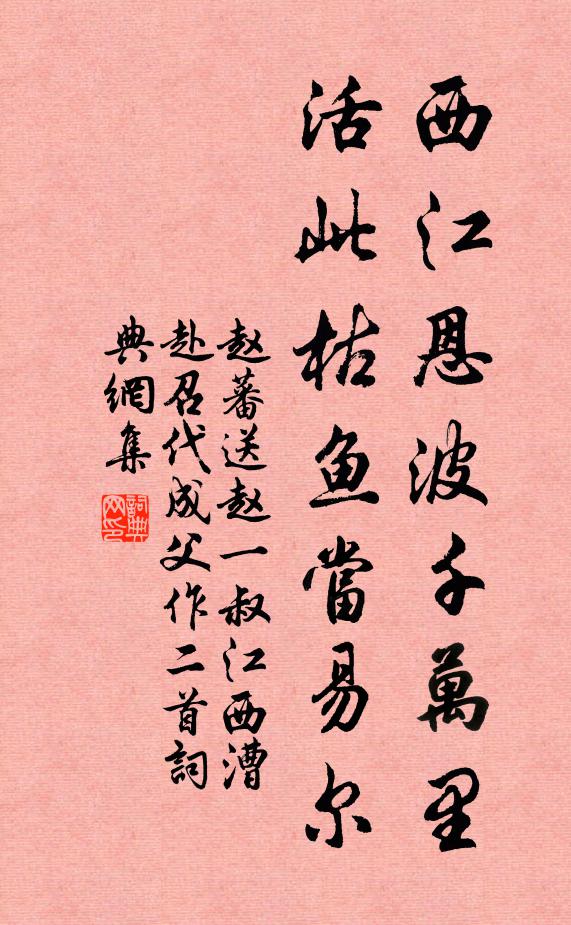 西江恩波千萬里
活此枯鱼當易尔
赵蕃送赵一叔江西漕
赴召代成父作二首詞
典網集
詞典网印